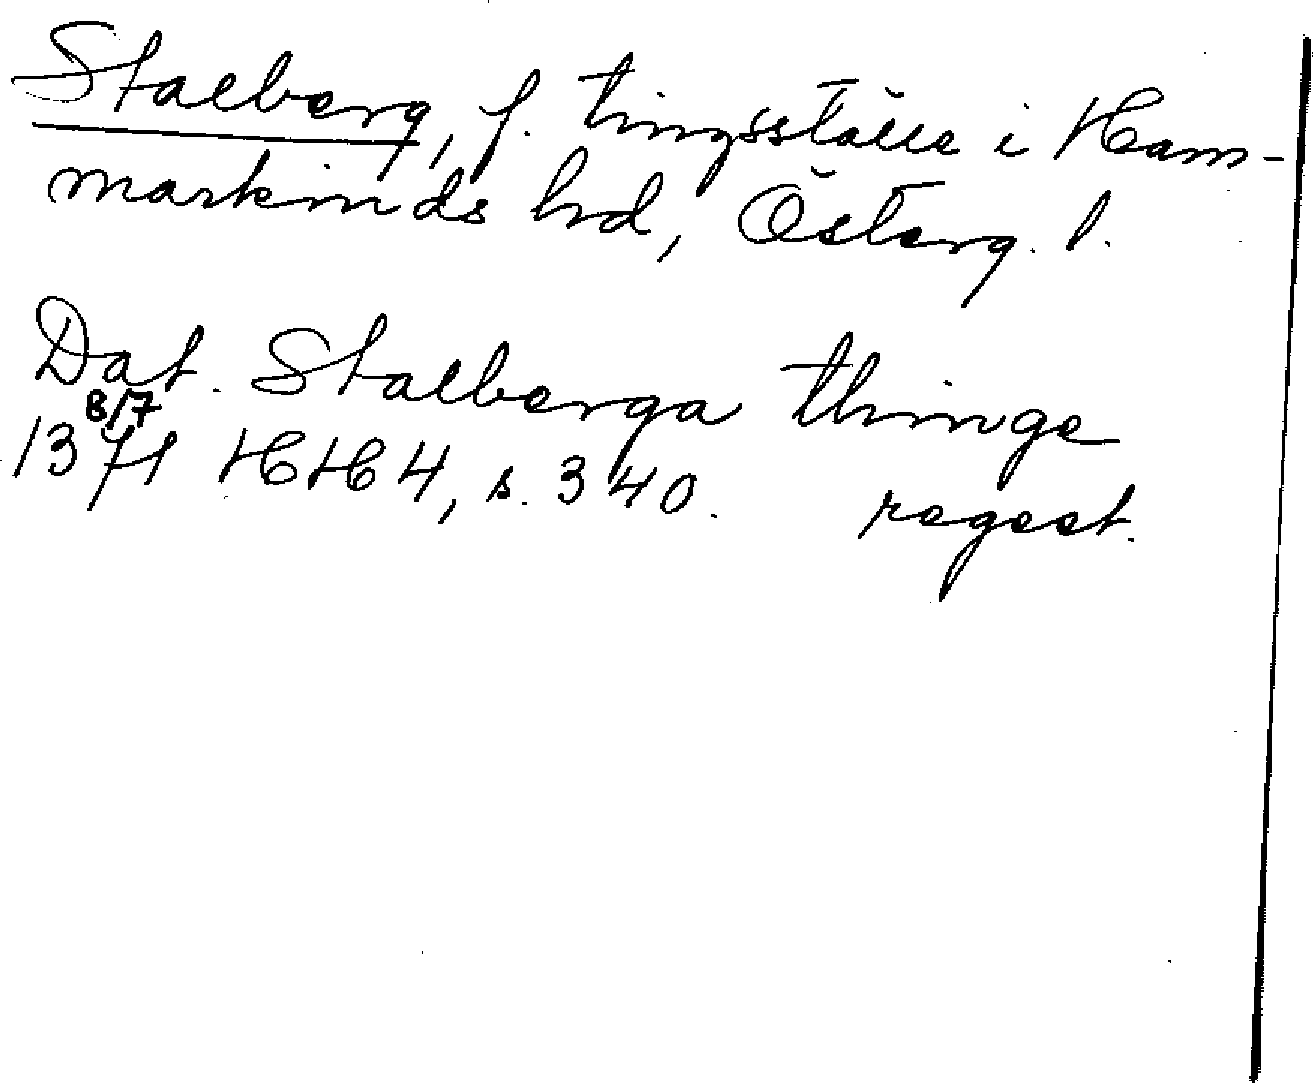 Stalberg, f. tingsställe i Ham-
markinds hd, Österg. l.
Dat. Stalberga thinge
8/7
1371 HH 4, s. 340. regest.